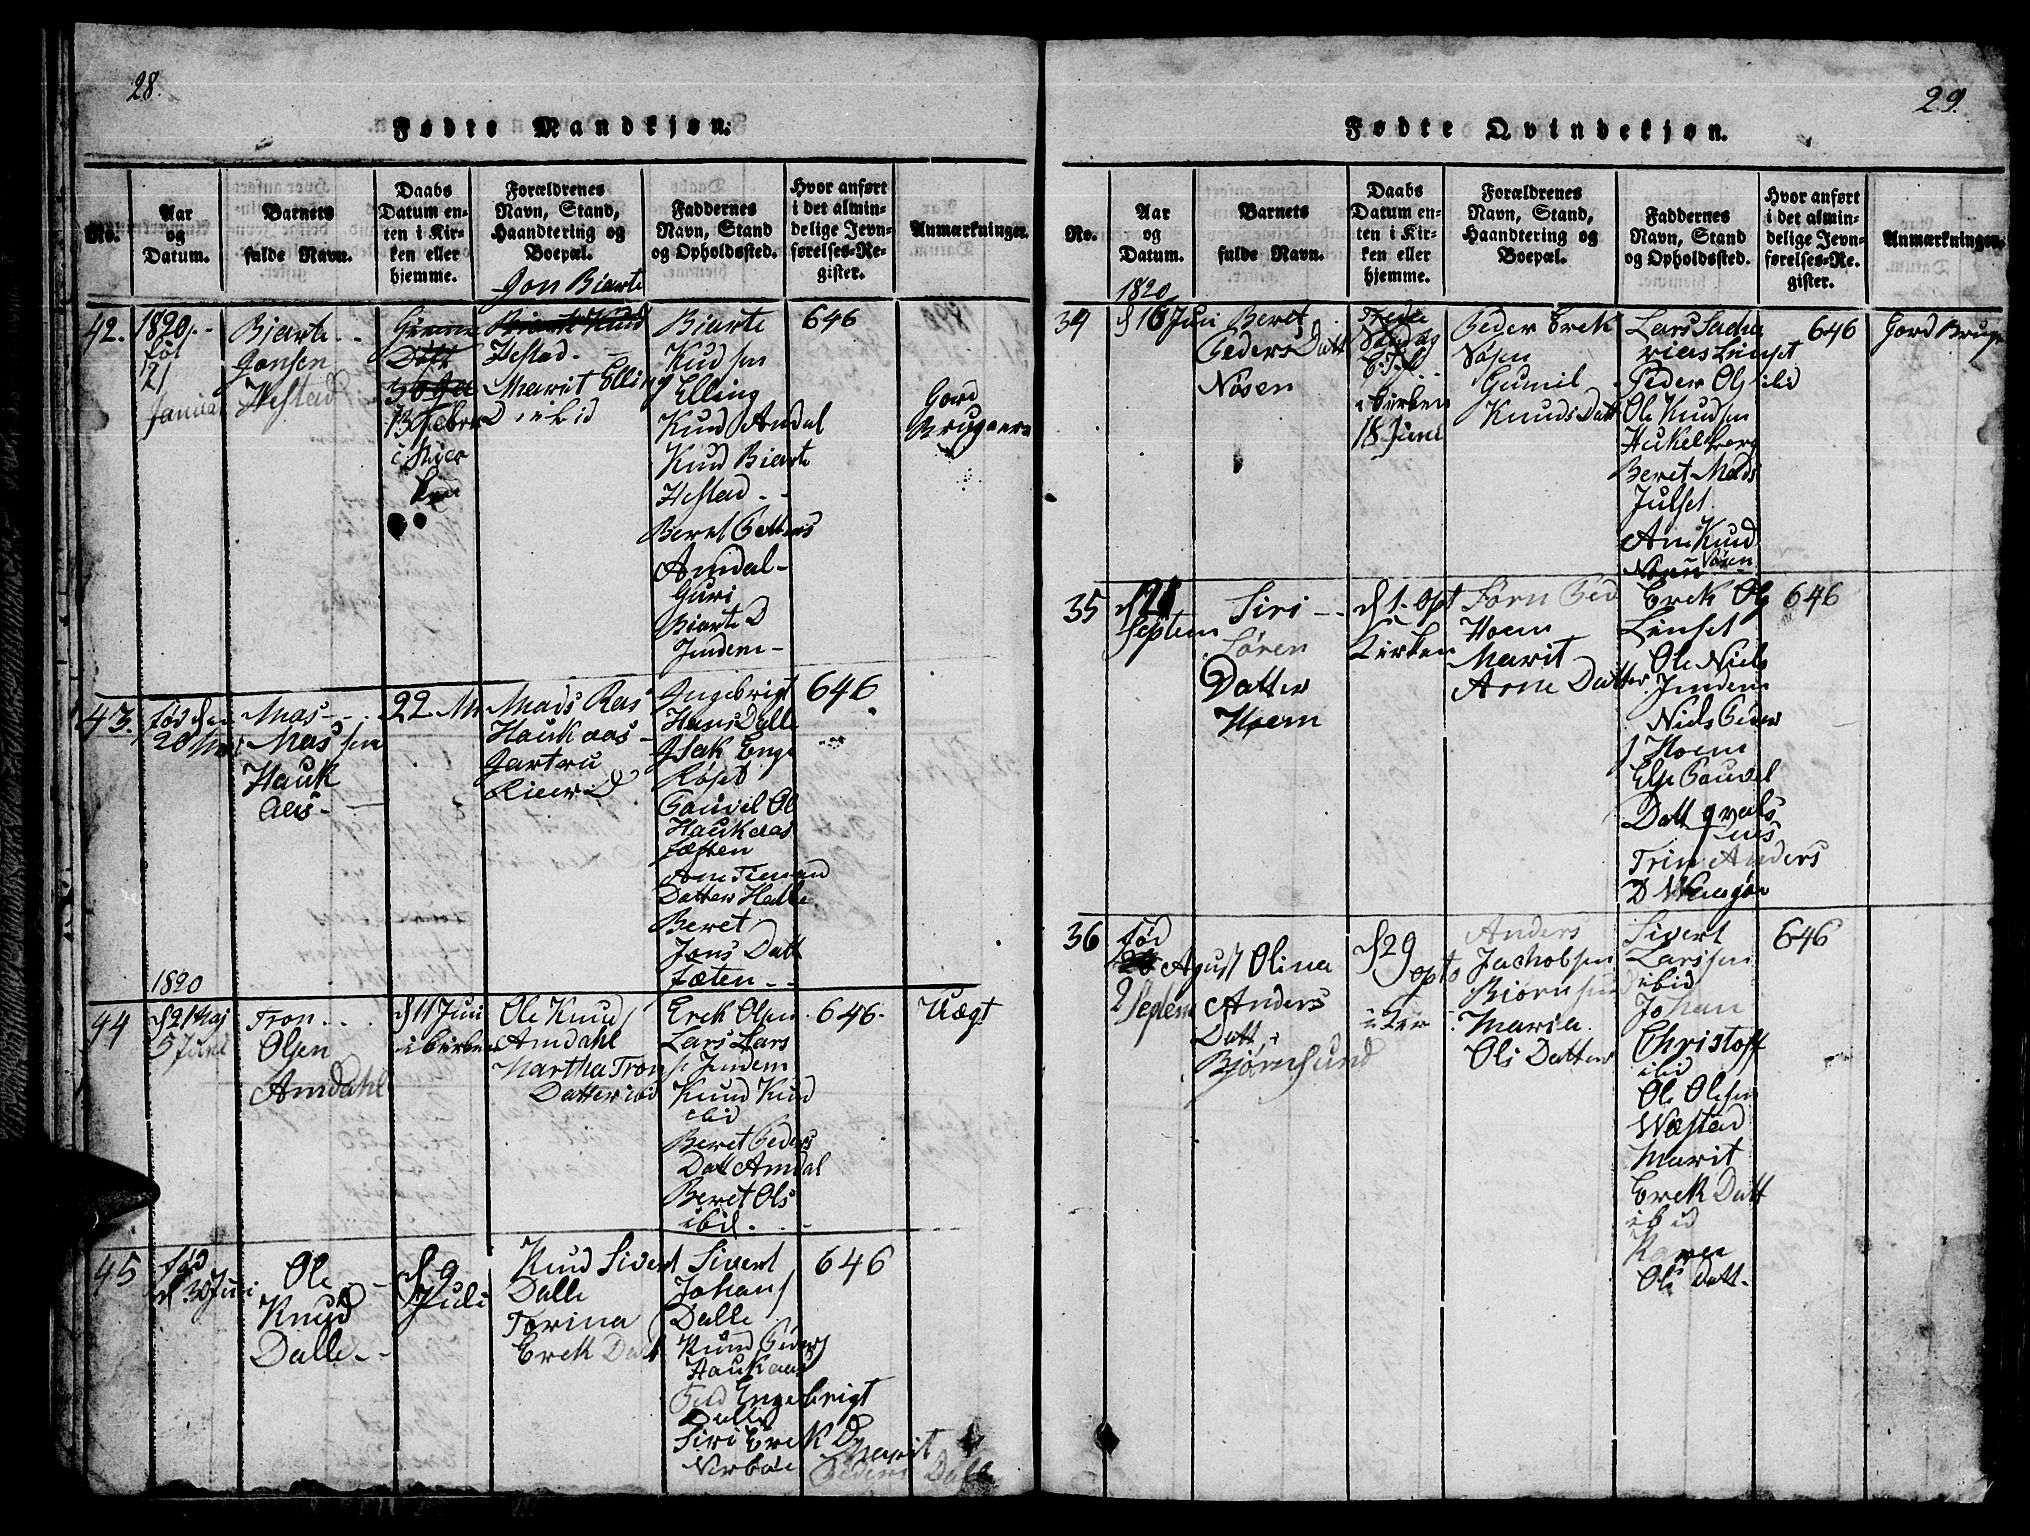 28.
Fødte Mandkjøn.
No.
Aar
og
Datum.
Barnets
fulde Navn.
Daabs
Datum en-
ten i Kir-
ken eller
hjemme.
Forældrenes
Navn, Stand,
Haandtering og
Boepæl.
Faddernes
Navn, Stand
og Opholdssted.
Hvor anført
i det almin-
delige Jevn-
førelses-Re-
gister.
Anmærkninger.
42.
1820.
føt
121
Januar
Biarte
Jonsen
Hestad
13 Febru
i Kier
ken
Jon Biarte
Hestad
Marit Elling
D ibid
Biarte
Kudsen
Elling
Kud Amdal
Kud Biarte
Hestad
Beret Petters
Amdal
Guri
Biarte D
Jndem
646
Gord
Brugaere
43.
fød den
20 Mar
Mas
Massen
Hauk
aas
22. M
Mads Ras
Haukaas
Jartru
D
Jngebrigt
Hans Dalle
Jsak Enge
Røset
Pouvel Ol
Haukaas
fæsten
Ane Tieman
Datter Halle
Beret
Jons Datt
fæten
646
44
1820
d 21 Maj
5 Juni
Tron
Olsen
Amdahl
d 11 Juni
i kirken
Ole Knud
Amdahl
Martha Tron
Datter ibid
Erek Olsen
Lars Lars
Jndem
Knud Knud
ibid
Beret Peders
Datt Amdal
Beret Ols
ibid.
646
Uægt
45
fød
d 30 Juni
Ole
Knud
Dalle
d 9
Juli
Knud Sivert
Dalle
Torina
Erek Datt
Sivert
Johans
Dalle
Knud Peders
Haukaas
Engebrigt
Dalle
Siri Erek D
Nerbøe
Marit
Peders Dalle
646
29.
Fødte Qvindekjøn.
No.
Aar
og
Datum.
Barnets
fulde Navn.
Daabs
Datum en-
ten i Kir-
ken eller
hjemme.
Forældrenes
Navn, Stand,
Haandtering og
Boepæl.
Faddernes
Navn, Stand
og Opholdssted.
Hvor anført
i det almin-
delige Jevn-
førelses-Re-
gister.
Anmærkninger.
34
1820
d 16 Juni
Beret
Peders Datt
Nøsen
Tredie
Søndag
i kirken
18 Juni
Peder Erek
Nøsen
Gunil
Knuds Datt
Lars Sacha
rias Linset
Peder Ols ibid
Ole Knudsen
Hukelberg
Beret Mads
Julset
Ane Knud
Nøsen
646
Gord Bruge
35
d 21
Septem
Siri
Søren
Datter
Hoem
d 1. Opt
Kirken
Sørn Ped
Hoem
Marit
Arne Datter
Erek Ols
Linset
Ole Niels
Jndem
Niels Peder
Hoem
Else Pouvel
Datt qvals
nes
Trin Anders
D
646
36
fød
Agust
2 Septem
Olina
Anders
Datt
Bjørnsund
d 29
opto
i kir
Anders
Jachobsen
Biørnsund
Maria
Ols Datter
Sivert
Larsen
ibid
Johan
Christoff
ibid
Ole Olesen
Wæstad
Marit
Erek Datt
ibid
Karen
Ols Datt
646